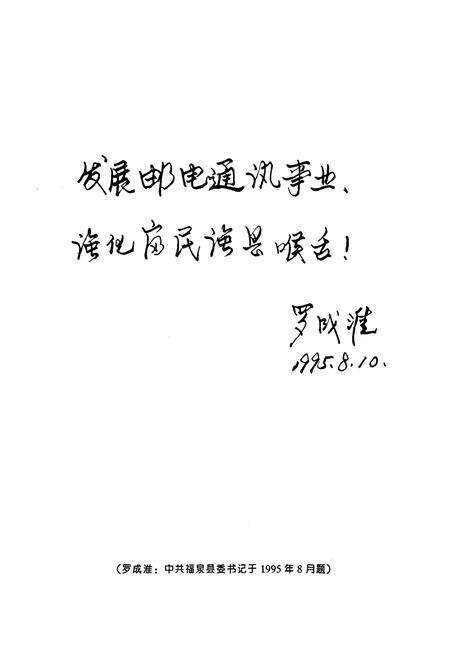 发展邮电通讯事业、
强化富民强县喉舌！
罗成淮
1995.8.10.
（罗成淮：中共福泉县委书记于 1995 年 8 月题）